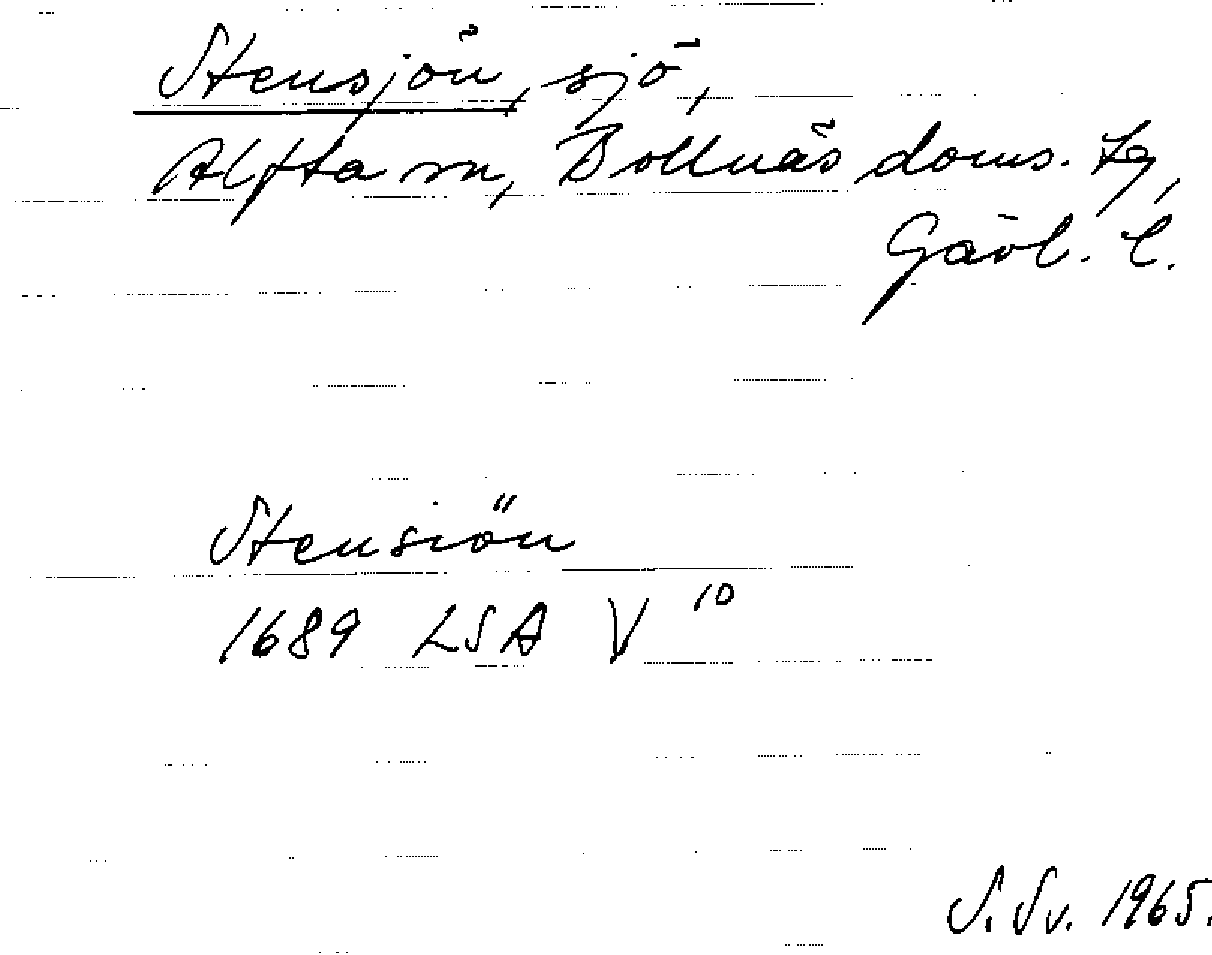 Stensjön, sjö,
Alfta sn, Bollnäs doms. tg,
Gävl. l.
Stensiön
1689 LSA V 10
S. Sv. 1965.